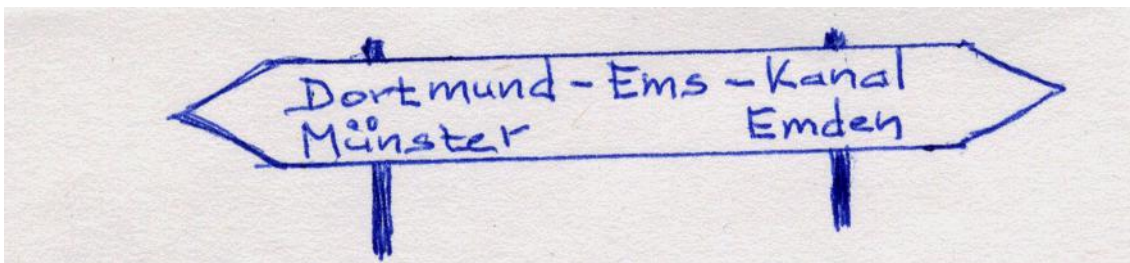 Dortmund - Ems - Kanal
Münster Emden